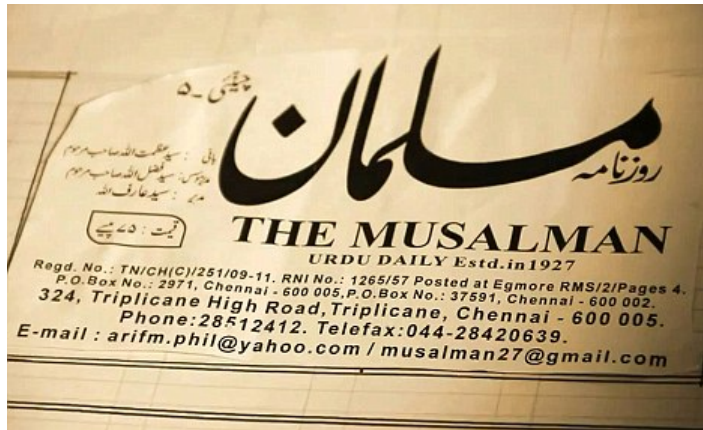 روزنامہ مسلمان
چنئی ۔ ۵
بانی : سید عظمت اللہ صاحب مرحوم
مدیر : سید عارف اللہ
قیمت : ۷۵ پیسے
THE MUSALMAN
URDU DAILY Estd.in1927
Regd. No.: TN/CH(C)/251/09-11. RNI No.: 1265/57 Posted at Egmore RMS/2/Pages 4.
P.O.Box No.: 2971, Chennai - 600 005,P.O.Box No.: 37591, Chennai - 600 002.
324, Triplicane High Road,Triplicane, Chennai - 600 005.
Phone:28512412. Telefax:044-28420639.
E-mail : arifm.phil@yahoo.com / musalman27@gmail.com